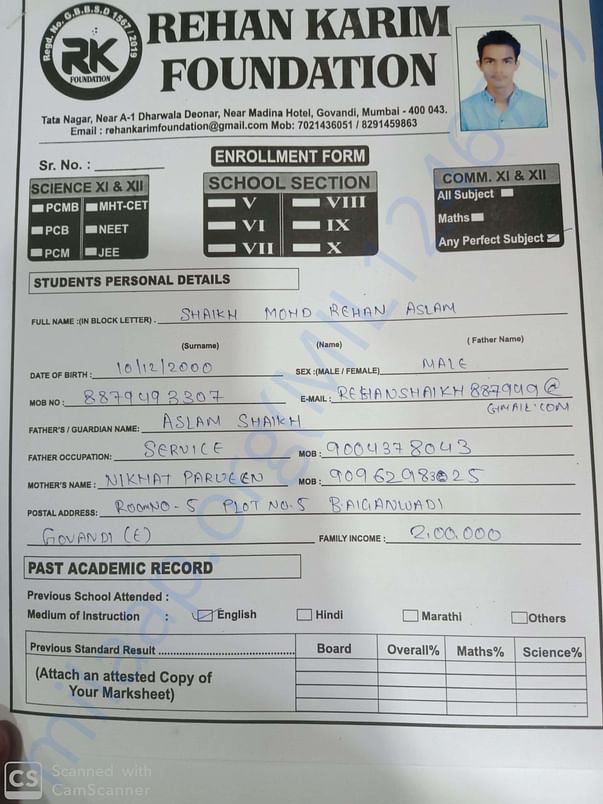 Regd. No. G.B.B.S.D 1567 / 2019
RK
FOUNDATION
REHAN KARIM
FOUNDATION
Tata Nagar, Near A-1 Dharwala Deonar, Near Madina Hotel, Govandi, Mumbai - 400 043.
Email : rehankarimfoundation@gmail.com Mob: 7021436051 / 8291459863
Sr. No. :
ENROLLMENT FORM
SCIENCE XI & XII
PCMB MHT-CET
PCB NEET
PCM JEE
SCHOOL SECTION
V VIII
VI IX
VII X
COMM. XI & XII
All Subject
Maths
Any Perfect Subject
STUDENTS PERSONAL DETAILS
FULL NAME :(IN BLOCK LETTER) . SHAIKH MOHD REHAN ASLAM
(Surname) (Name) ( Father Name)
DATE OF BIRTH : 10/12/2000 SEX :(MALE / FEMALE) MALE
MOB NO : 8879493307 E-MAIL : REHANSHAIKH887949@
GMAIL.COM
FATHER'S / GUARDIAN NAME: ASLAM SHAIKH
FATHER OCCUPATION: SERVICE MOB : 9004378043
MOTHER'S NAME : NIKHAT PARVEEN MOB : 9096298325
POSTAL ADDRESS: ROOM NO - 5 PLOT NO. 5 BAIGANWADI
GOVANDI (E) FAMILY INCOME : 2,00,000
PAST ACADEMIC RECORD
Previous School Attended :
Medium of Instruction : English Hindi Marathi Others
Previous Standard Result Board Overall% Maths% Science%
(Attach an attested Copy of
Your Marksheet)
CS Scanned with
CamScanner